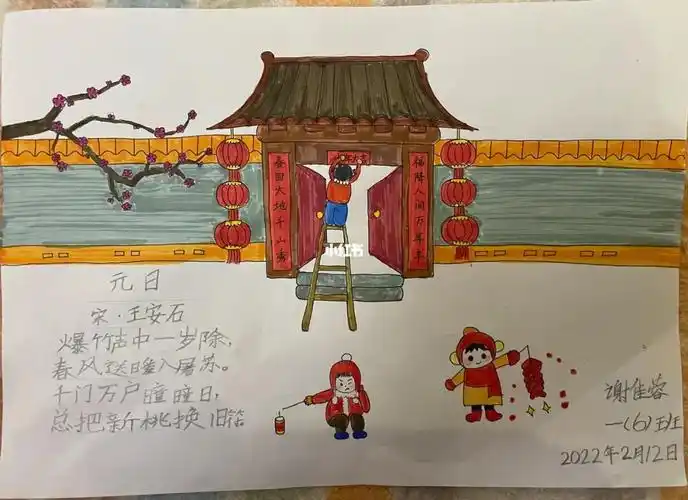 春回大地千山秀
福降人间万年丰
小红书
元日
宋·王安石
爆竹声中一岁除,
春风送暖入屠苏。
千门万户曈曈日,
总把新桃换旧符
谢佳蓉
一(6)班
2022年2月12日